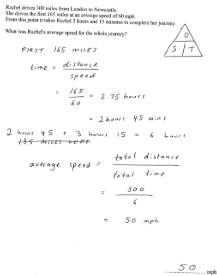 Rachel drives 300 miles from London to Newcastle.
She drives the first 165 miles at an average speed of 60 mph.
From this point it takes Rachel 3 hours and 15 minutes to complete her journey.
What was Rachel's average speed for the whole journey?
D
S T
FIRST 165 MILES
time = distance
speed
= 165
60
= 2.75 hours
= 2 hours 45 mins
2 hours 45 + 3 hours 15 = 6 hours
135 MILES LEFT
average speed = total distance
total time
= 300
6
= 50 mph
50 mph